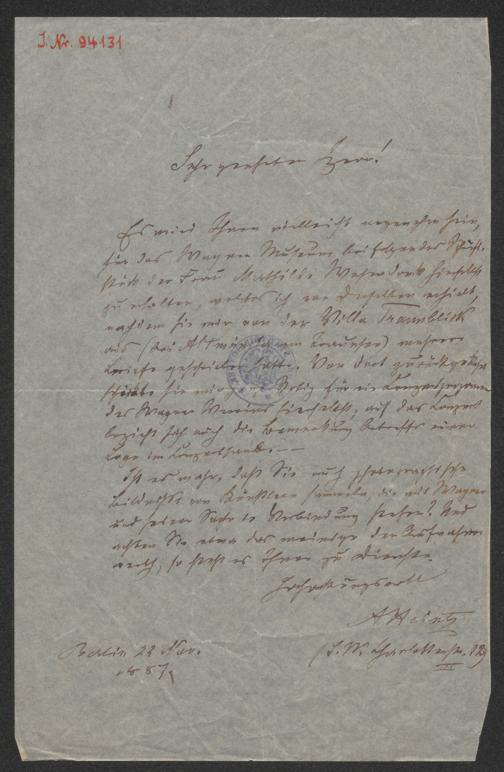 J. Nr. 94131
Sehr geehrter Herr!
Es wird Ihnen vielleicht angenehm sein,
für das Wagner Museum beifolgendes Schrift-
stück der Frau Mathilde Wesendonk hierselbst
zu erhalten, welches ich von Derselben erhielt,
nachdem sie mir von der Villa Traunblick
aus (bei Altmünster am Traunsee) mehrere
Briefe geschrieben hatte. Von dort zurückgekehrt
schickte sie mir für ein Konzertprogramm
des Wagner Vereins hierselbst, auf das Konzert
bezieht sich auch die Bemerkung betreffs einer
Loge im Konzerthause. —
Ist es wahr, daß Sie auch photographische
Bildnisse von Künstlern sammeln, die mit Wagner
und seiner Sache in Verbindung stehen? Und
achten Sie etwa das meinige der Aufnahme
werth, so steht es Ihnen zu Diensten.
Hochachtungsvoll
A. Heintz
Berlin 22 Nov.
1887.
(S. W. Charlottenstr.